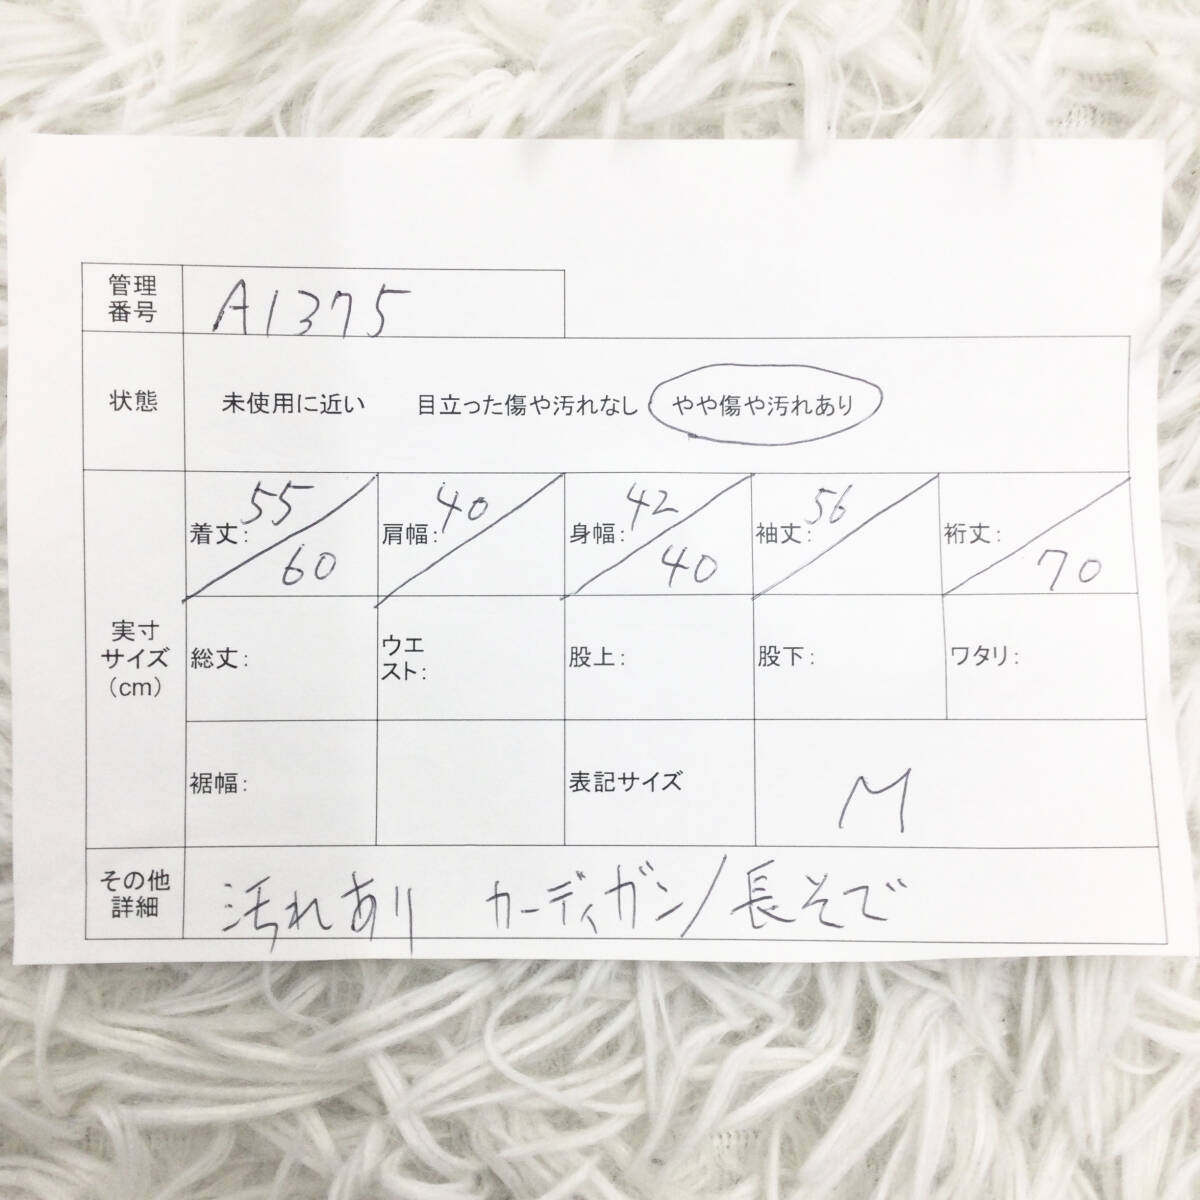 管理
番号
A1375
状態
未使用に近い 目立った傷や汚れなし やや傷や汚れあり
実寸
サイズ
(cm)
着丈: 55/60
肩幅: 40/
身幅: 42/40
袖丈: 56/
裄丈: /70
総丈:
ウエ
スト:
股上:
股下:
ワタリ:
裾幅:
表記サイズ
M
その他
詳細
汚れあり カーディガン/長そで